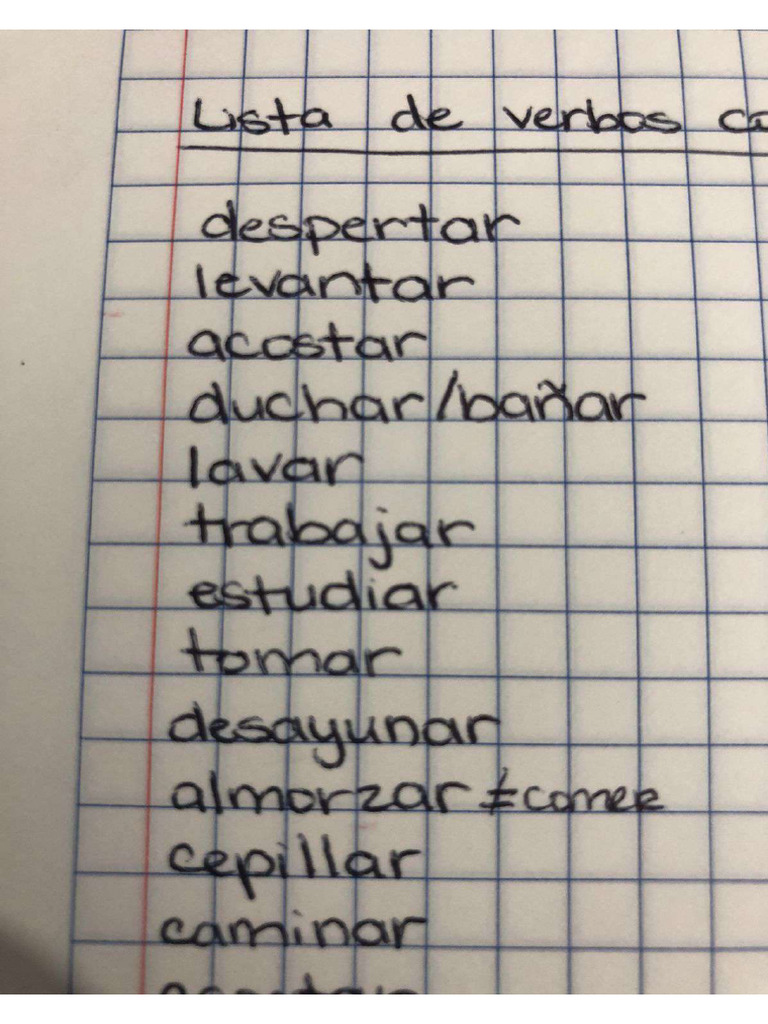 Lista de verbos
despertar
levantar
acostar
duchar/bañar
lavar
trabajar
estudiar
tomar
desayunar
almorzar ≠ comer
cepillar
caminar